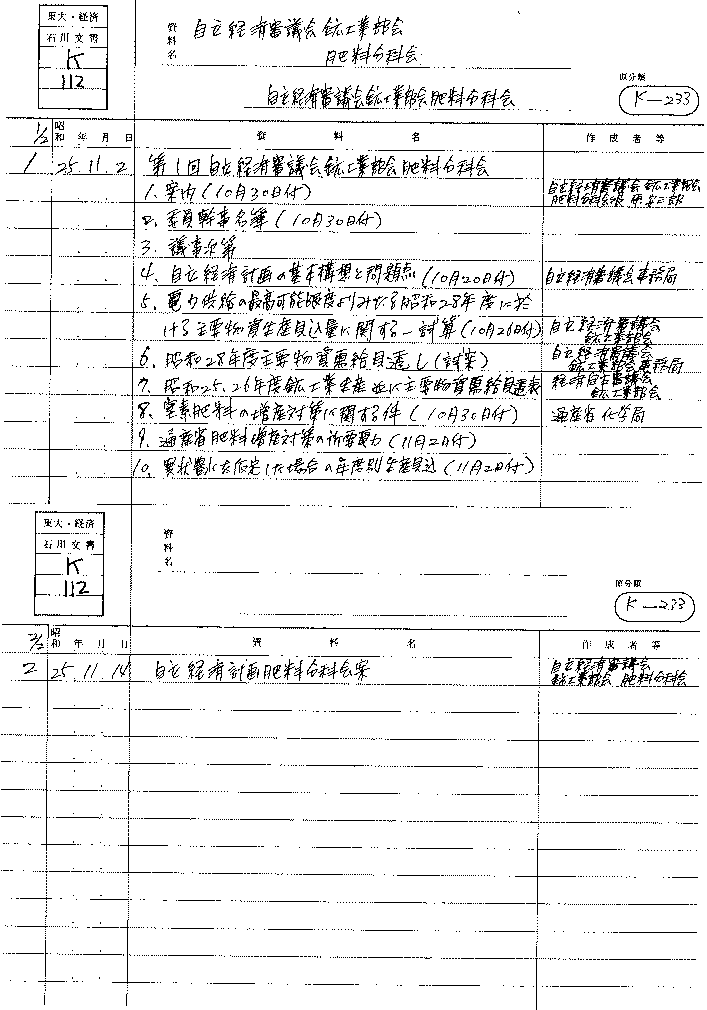 東大・経済
石川文書
K
112
資料名
自立経済審議会鉱工業部会
肥料分科会
自立経済審議会鉱工業部会肥料分科会
原分類
K-233
1/2 昭和 年 月 日 資 料 名 作成者等
1 25.11.2 第1回自立経済審議会鉱工業部会肥料分科会
1. 案内(10月30日付) 自立経済審議会鉱工業部会
肥料分科会長 原安三郎
2. 委員幹事名簿(10月30日付)
3. 議事次第
4. 自立経済計画の基本構想と問題点(10月20日付) 自立経済審議会事務局
5. 電力供給の最高可能限度よりみたる昭和28年度に於
ける主要物資生産見込量に関する一試算(10月26日付) 自立経済審議会
鉱工業部会
6. 昭和28年度主要物資需給見透し(試案) 自立経済審議会
鉱工業部会事務局
7. 昭和25.26年度鉱工業生産並に主要物資需給見透表 経済自立審議会
鉱工業部会
8. 窒素肥料の増産対策に関する件(10月30日付) 通産省化学局
9. 通産省肥料増産対策の所要電力(11月2日付)
10. 現状豊水を仮定した場合の年度別生産見込(11月2日付)
東大・経済
石川文書
K
112
資料名
原分類
K-233
2/2 昭和 年 月 日 資 料 名 作成者等
2 25.11.14 自立経済計画肥料分科会案 自立経済審議会
鉱工業部会 肥料分科会